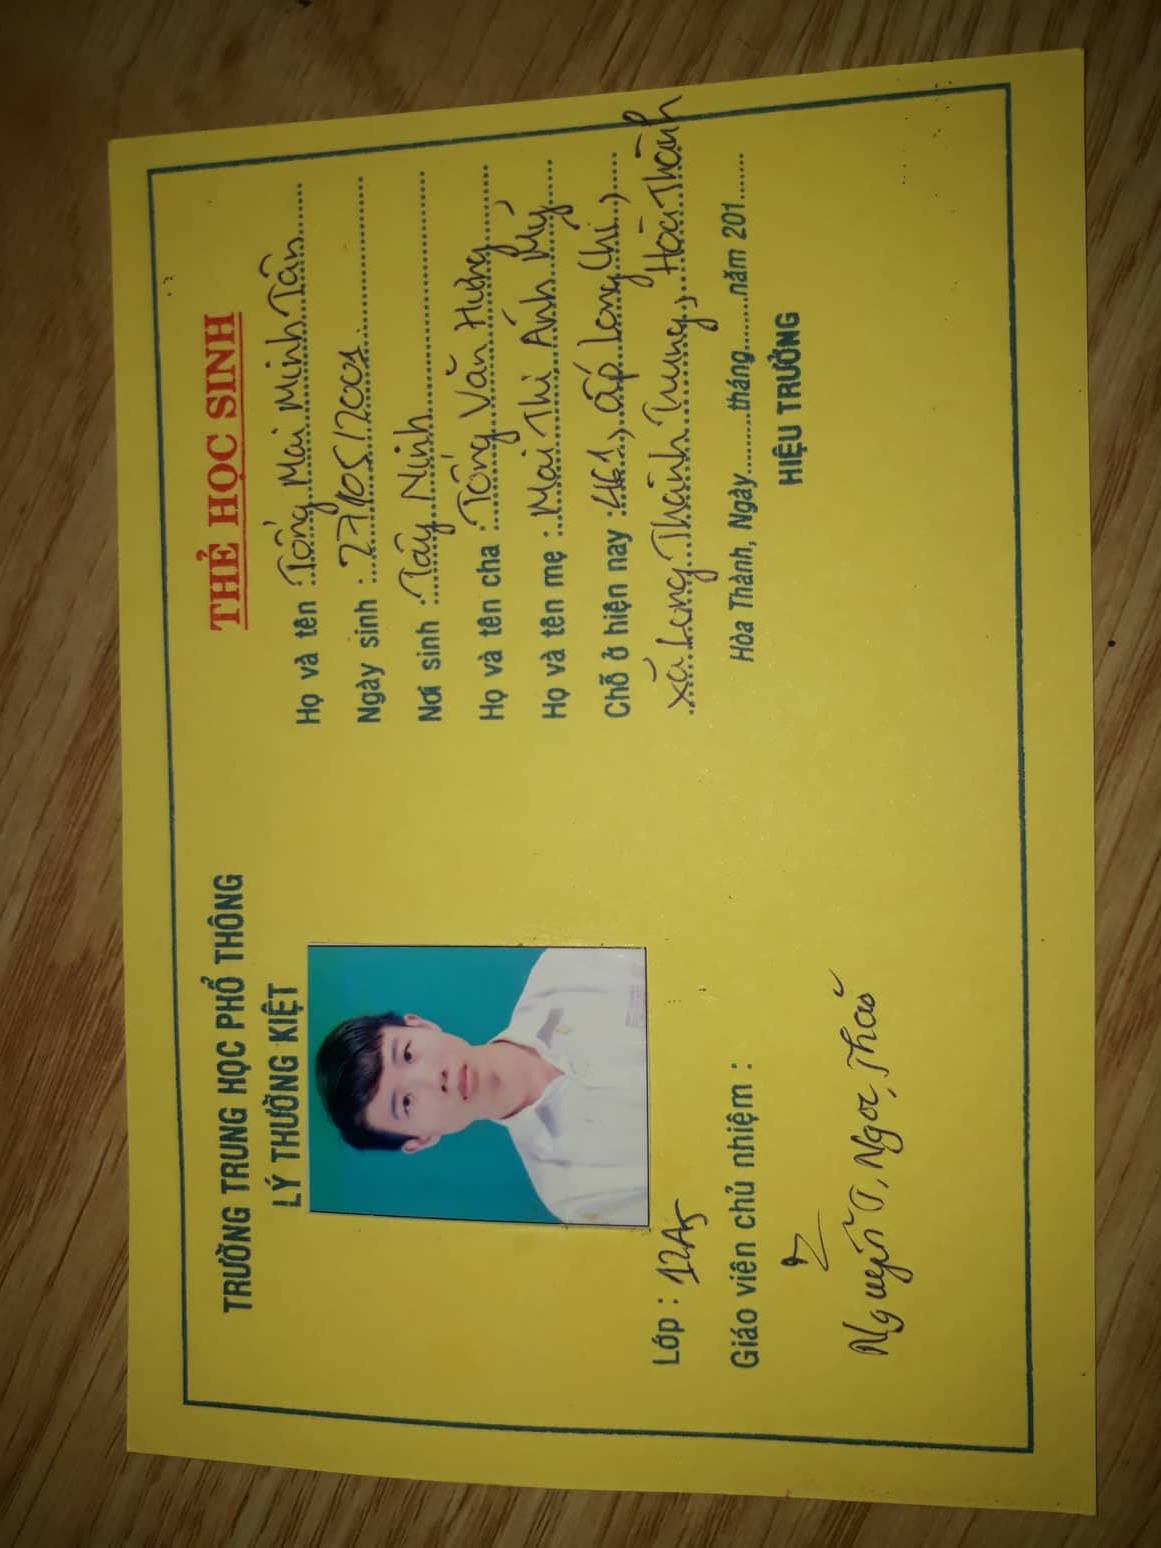 TRƯỜNG TRUNG HỌC PHỔ THÔNG
LÝ THƯỜNG KIỆT
Lớp : 12A5
Giáo viên chủ nhiệm :
Nguyễn T. Ngọc Thảo
THẺ HỌC SINH
Họ và tên : Tống Mai Minh Tân
Ngày sinh : 27/05/2001
Nơi sinh : Tây Ninh
Họ và tên cha : Tống Văn Hưng
Họ và tên mẹ : Mai Thi Ánh Mỹ
Chỗ ở hiện nay : 461, ấp Long Chi,
xã Long Thành Trung, Hoà Thành
Hòa Thành, Ngày.........tháng.........năm 201......
HIỆU TRƯỞNG